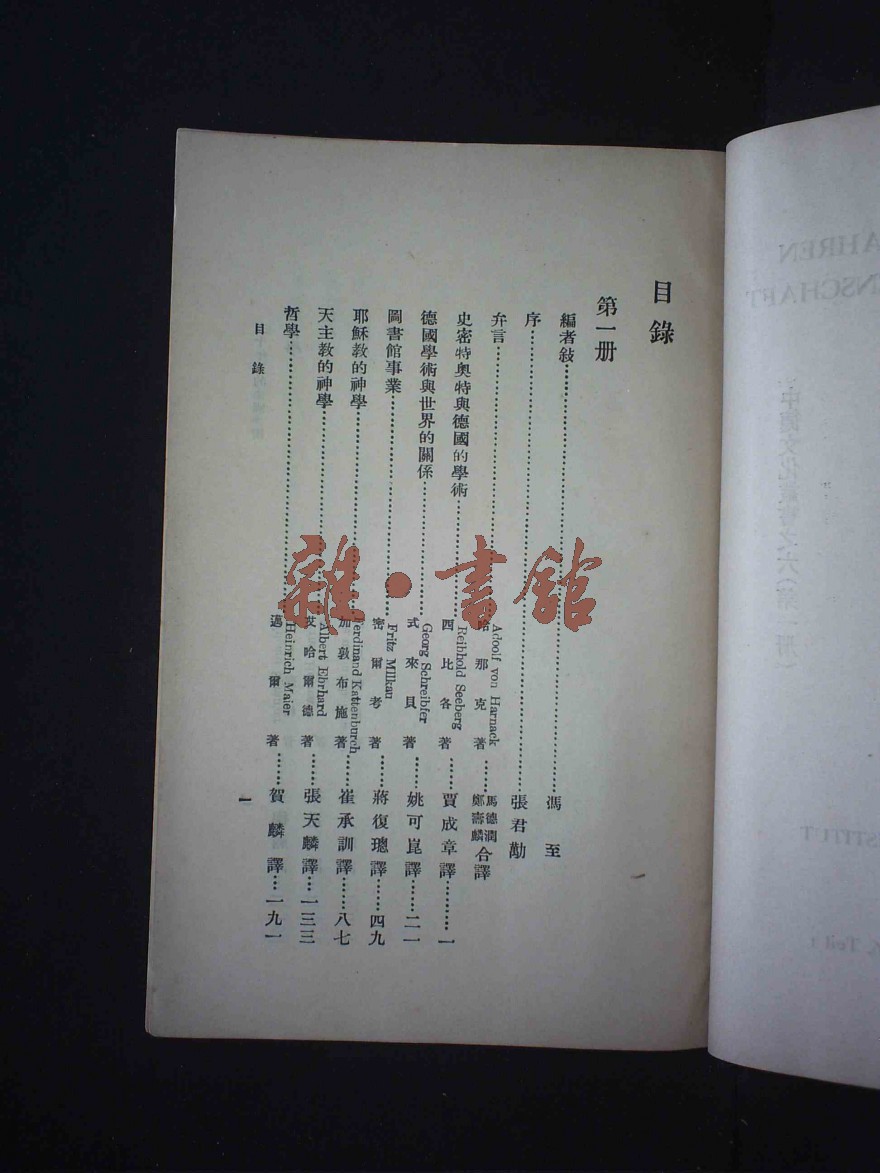 目錄
第一册
編者敍……馮至
序……張君勱
弁言……Adoolf von Harnack 哈那克著……馬德潤 鄭壽麟 合譯
史密特奥特與德國的學術……Reibhold Seeberg 西比各著……賈成章譯……一
德國學術與世界的關係……Georg Schreibfer 式來貝著……姚可崑譯……二一
圖書館事業……Fritz Milkau 密爾考著……蔣復璁譯……四九
耶穌教的神學……Ferdinand Kattenburch 加敦布施著……崔承訓譯……八七
天主教的神學……Albert Ehrhard 艾哈爾德著……張天麟譯……一三三
哲學……Heinrich Maier 邁爾著……賀麟譯……一九一
目錄
一
雜·書館
AHREN
NSCHAFT
中德文化叢書之六(第一册)
STITUT
Teil 1